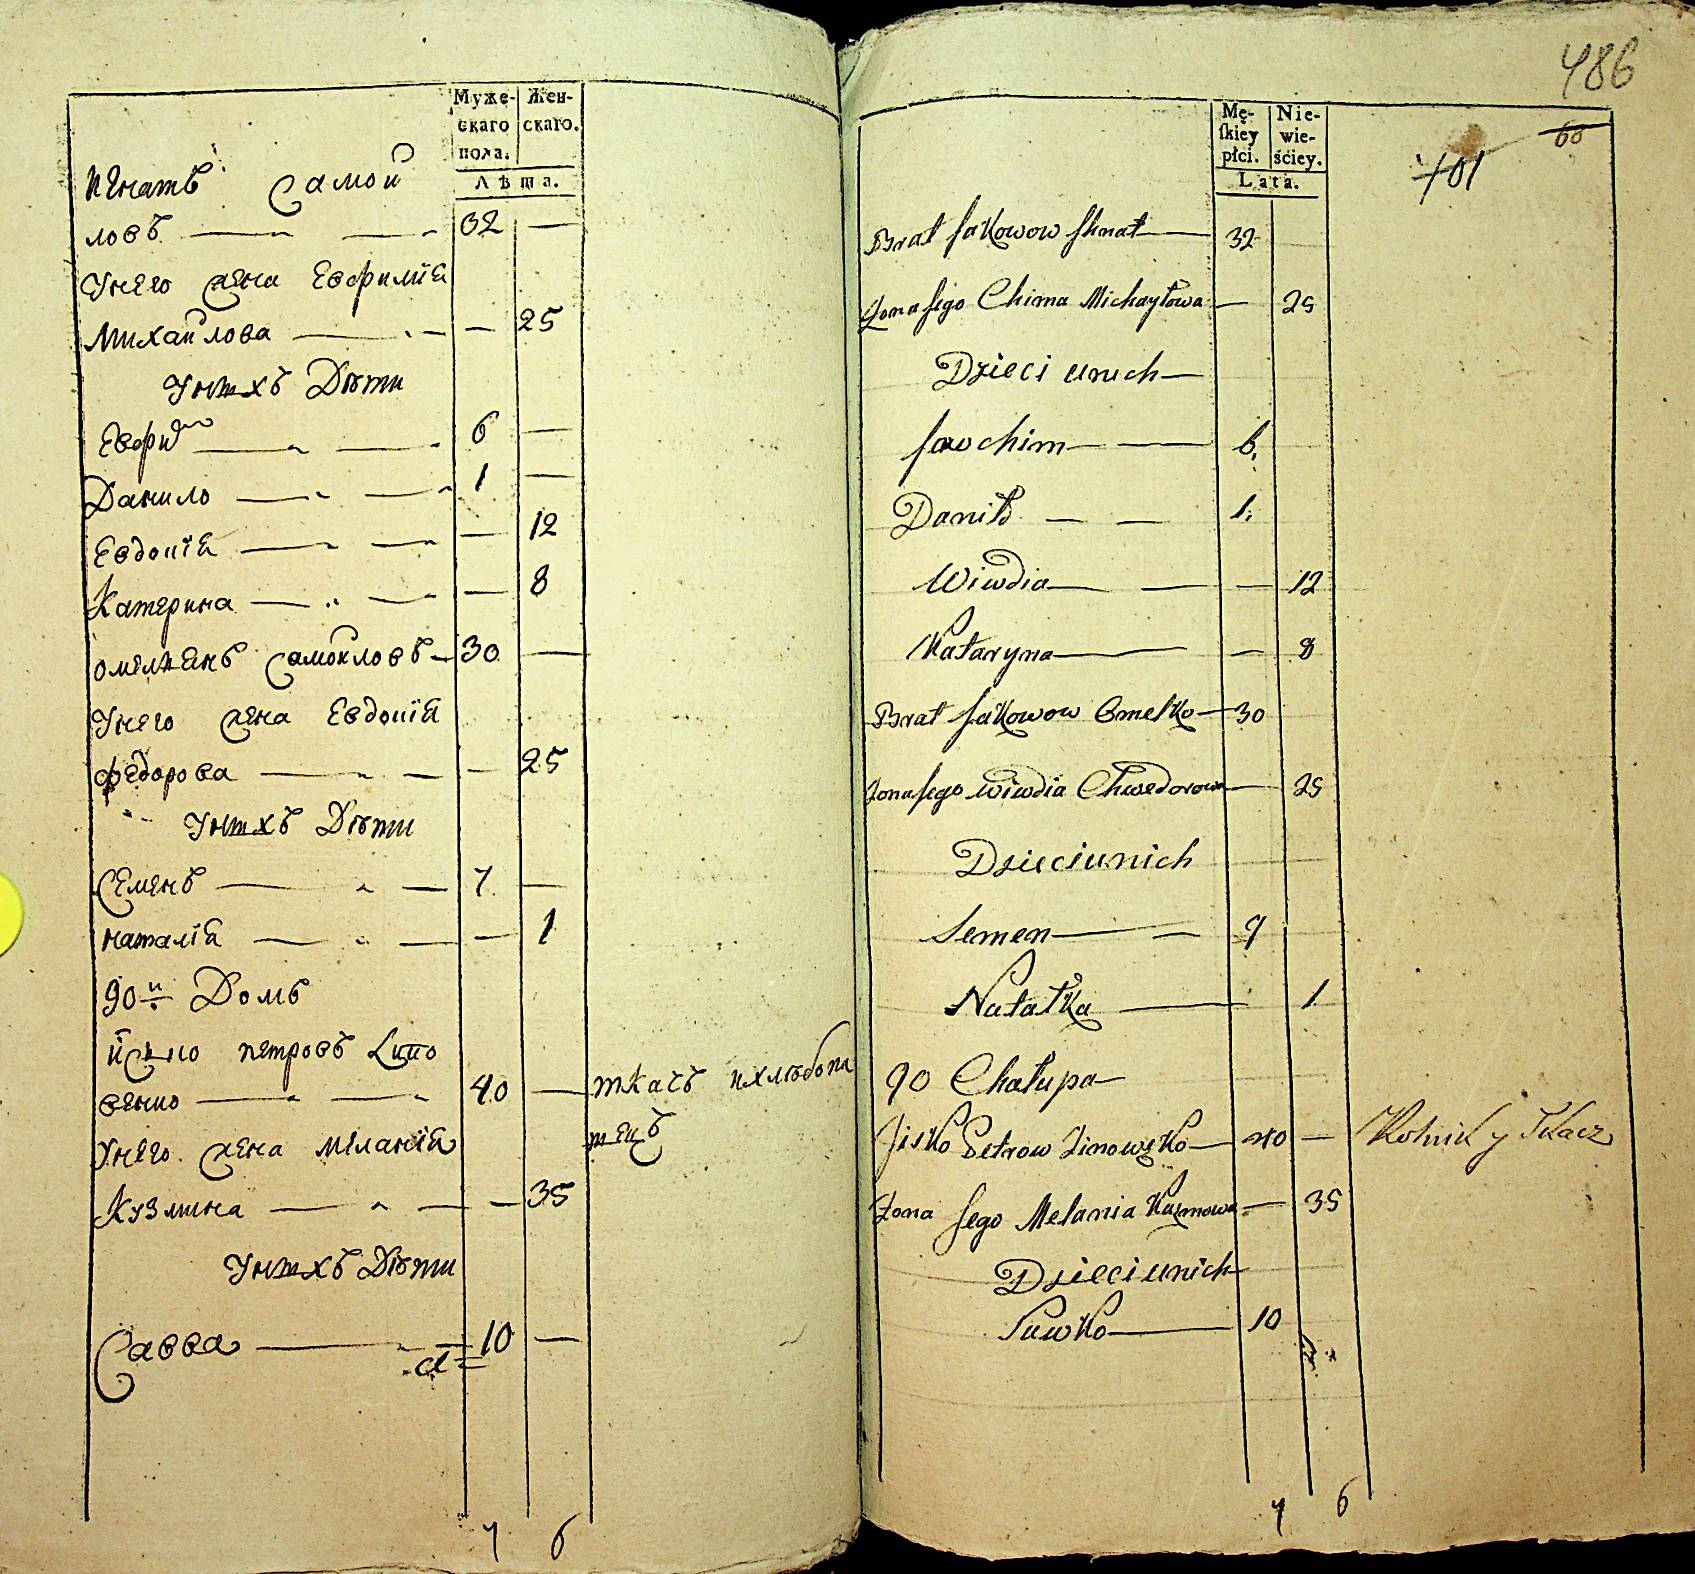 Муже-
скаго
пола.
Жен-
скаго.
Лѣта.
Игнатъ Самой
ловъ 32 —
Унего жена Евфимія
Михайлова — 25
Унихъ Дѣти
Евфи 6 —
Данило 1 —
Евдокія — 12
Катерина — 8
Омелянъ Самойловъ 30 —
Унего жена Евдокія
Федорова — 25
Унихъ Дѣти
Семенъ 7 —
Наталія — 1
90й Домъ
Петровъ
40 — ткачъ ихлѣбопа
шецъ
Унего жена Меланія
Кузмина — 35
Унихъ Дѣти
Савва 10 —
7 6
486
Mę-
ſkiey
płci.
Nie-
wie-
ściey.
Lata.
60
701
Brat Jakowow Ihnat 32
Żona Jego Chima Michayłowa — 25
Dzieci unich
Jawchim 6.
Daniło 1.
Wiwdia — 12
Kataryna — 8
Brat Jakowow Omelko 30
Żona Jego Wiwdia Chwedorowa — 25
Dzieci unich
Semen 7
Natalka 1
90 Chałupa
Jisko Petrow 40 — Rolnik y Tkacz
Żona Jego Melania Kuzmowa — 35
Dzieci unich
Sawko 10
7 6